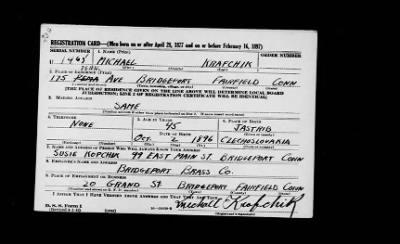 REGISTRATION CARD—(Men born on or after April 28, 1877 and on or before February 16, 1897)
SERIAL NUMBER 1. NAME (Print) ORDER NUMBER
U MICHAEL KRAFCHIK
2. PLACE OF RESIDENCE (Print)
175 AVE BRIDGEPORT FAIRFIELD CONN
[THE PLACE OF RESIDENCE GIVEN ON THE LINE ABOVE WILL DETERMINE LOCAL BOARD
JURISDICTION; LINE 2 OF REGISTRATION CERTIFICATE WILL BE IDENTICAL]
3. MAILING ADDRESS
SAME
4. TELEPHONE 5. AGE IN YEARS 6. PLACE OF BIRTH
NONE 45 JASTRIB
DATE OF BIRTH
OCT. 2 1896 CZECHOSLOVAKIA
7. NAME AND ADDRESS OF PERSON WHO WILL ALWAYS KNOW YOUR ADDRESS
SUSIE KOPCHIK 99 EAST MAIN ST. BRIDGEPORT CONN
8. EMPLOYER'S NAME AND ADDRESS
BRIDGEPORT BRASS CO.
9. PLACE OF EMPLOYMENT OR BUSINESS
20 GRAND ST BRIDGEPORT FAIRFIELD CONN
I AFFIRM THAT I HAVE VERIFIED ABOVE ANSWERS AND THAT THEY ARE TRUE.
D. S. S. Form 1
Michael Krafchik